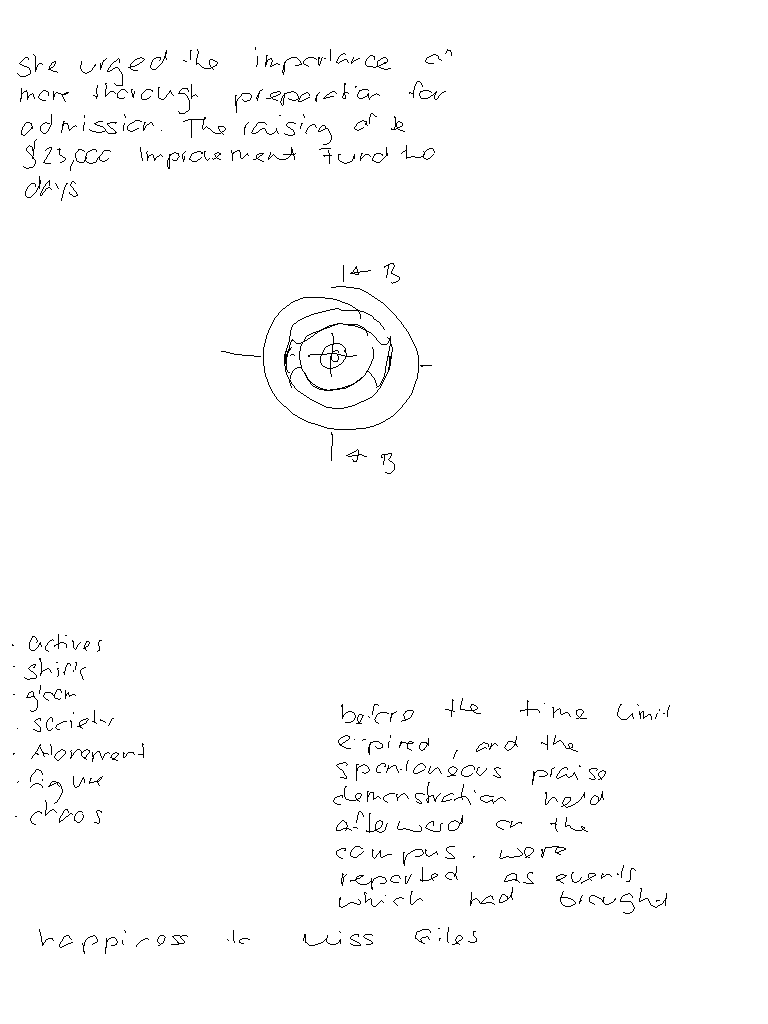 She urged the importance of
more thorough preparation for
admission. The raising of
$25,000 Improvement Fund two
days
B
B
. actives
. shirk
. gloom
. society
. Atonement
. figure
. chaos
before the time limit
expired, and the
spontaneous praise
demonstration held
afterward on the
campus. were
reported as events
which had brought
happiness to Miss Giles